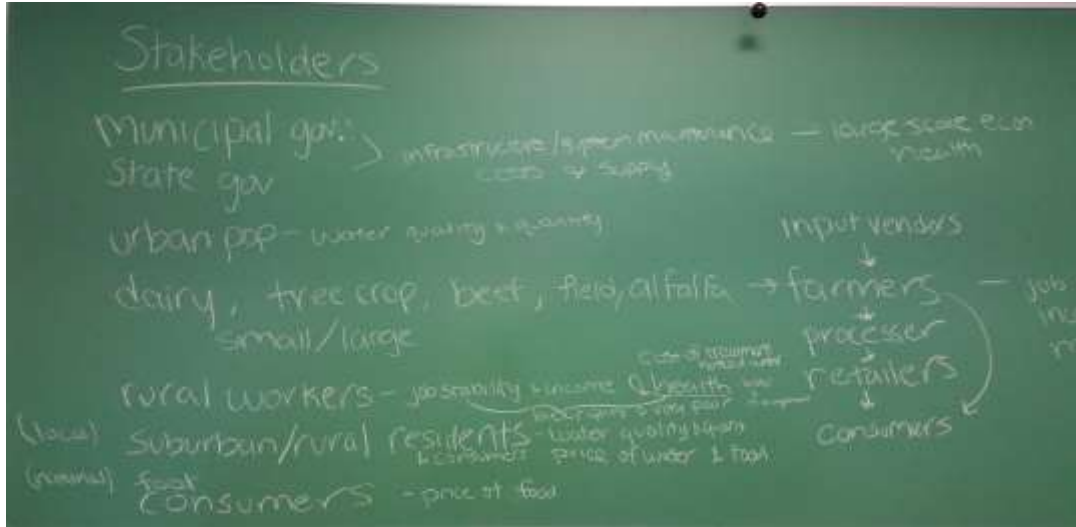 Stakeholders
municipal gov.
State gov
infrastructure/system maintenance — large scale econ health
costs of supply
urban pop – water quality & quantity
input vendors
↓
dairy, tree crop, beef, field, alfalfa → farmers — job
small/large
↓
processer
↓
retailers
↓
consumers
rural workers – job stability & income & health
(local) suburban/rural residents – water quality &
& consumers price of water & food
(national) food
consumers – price of food